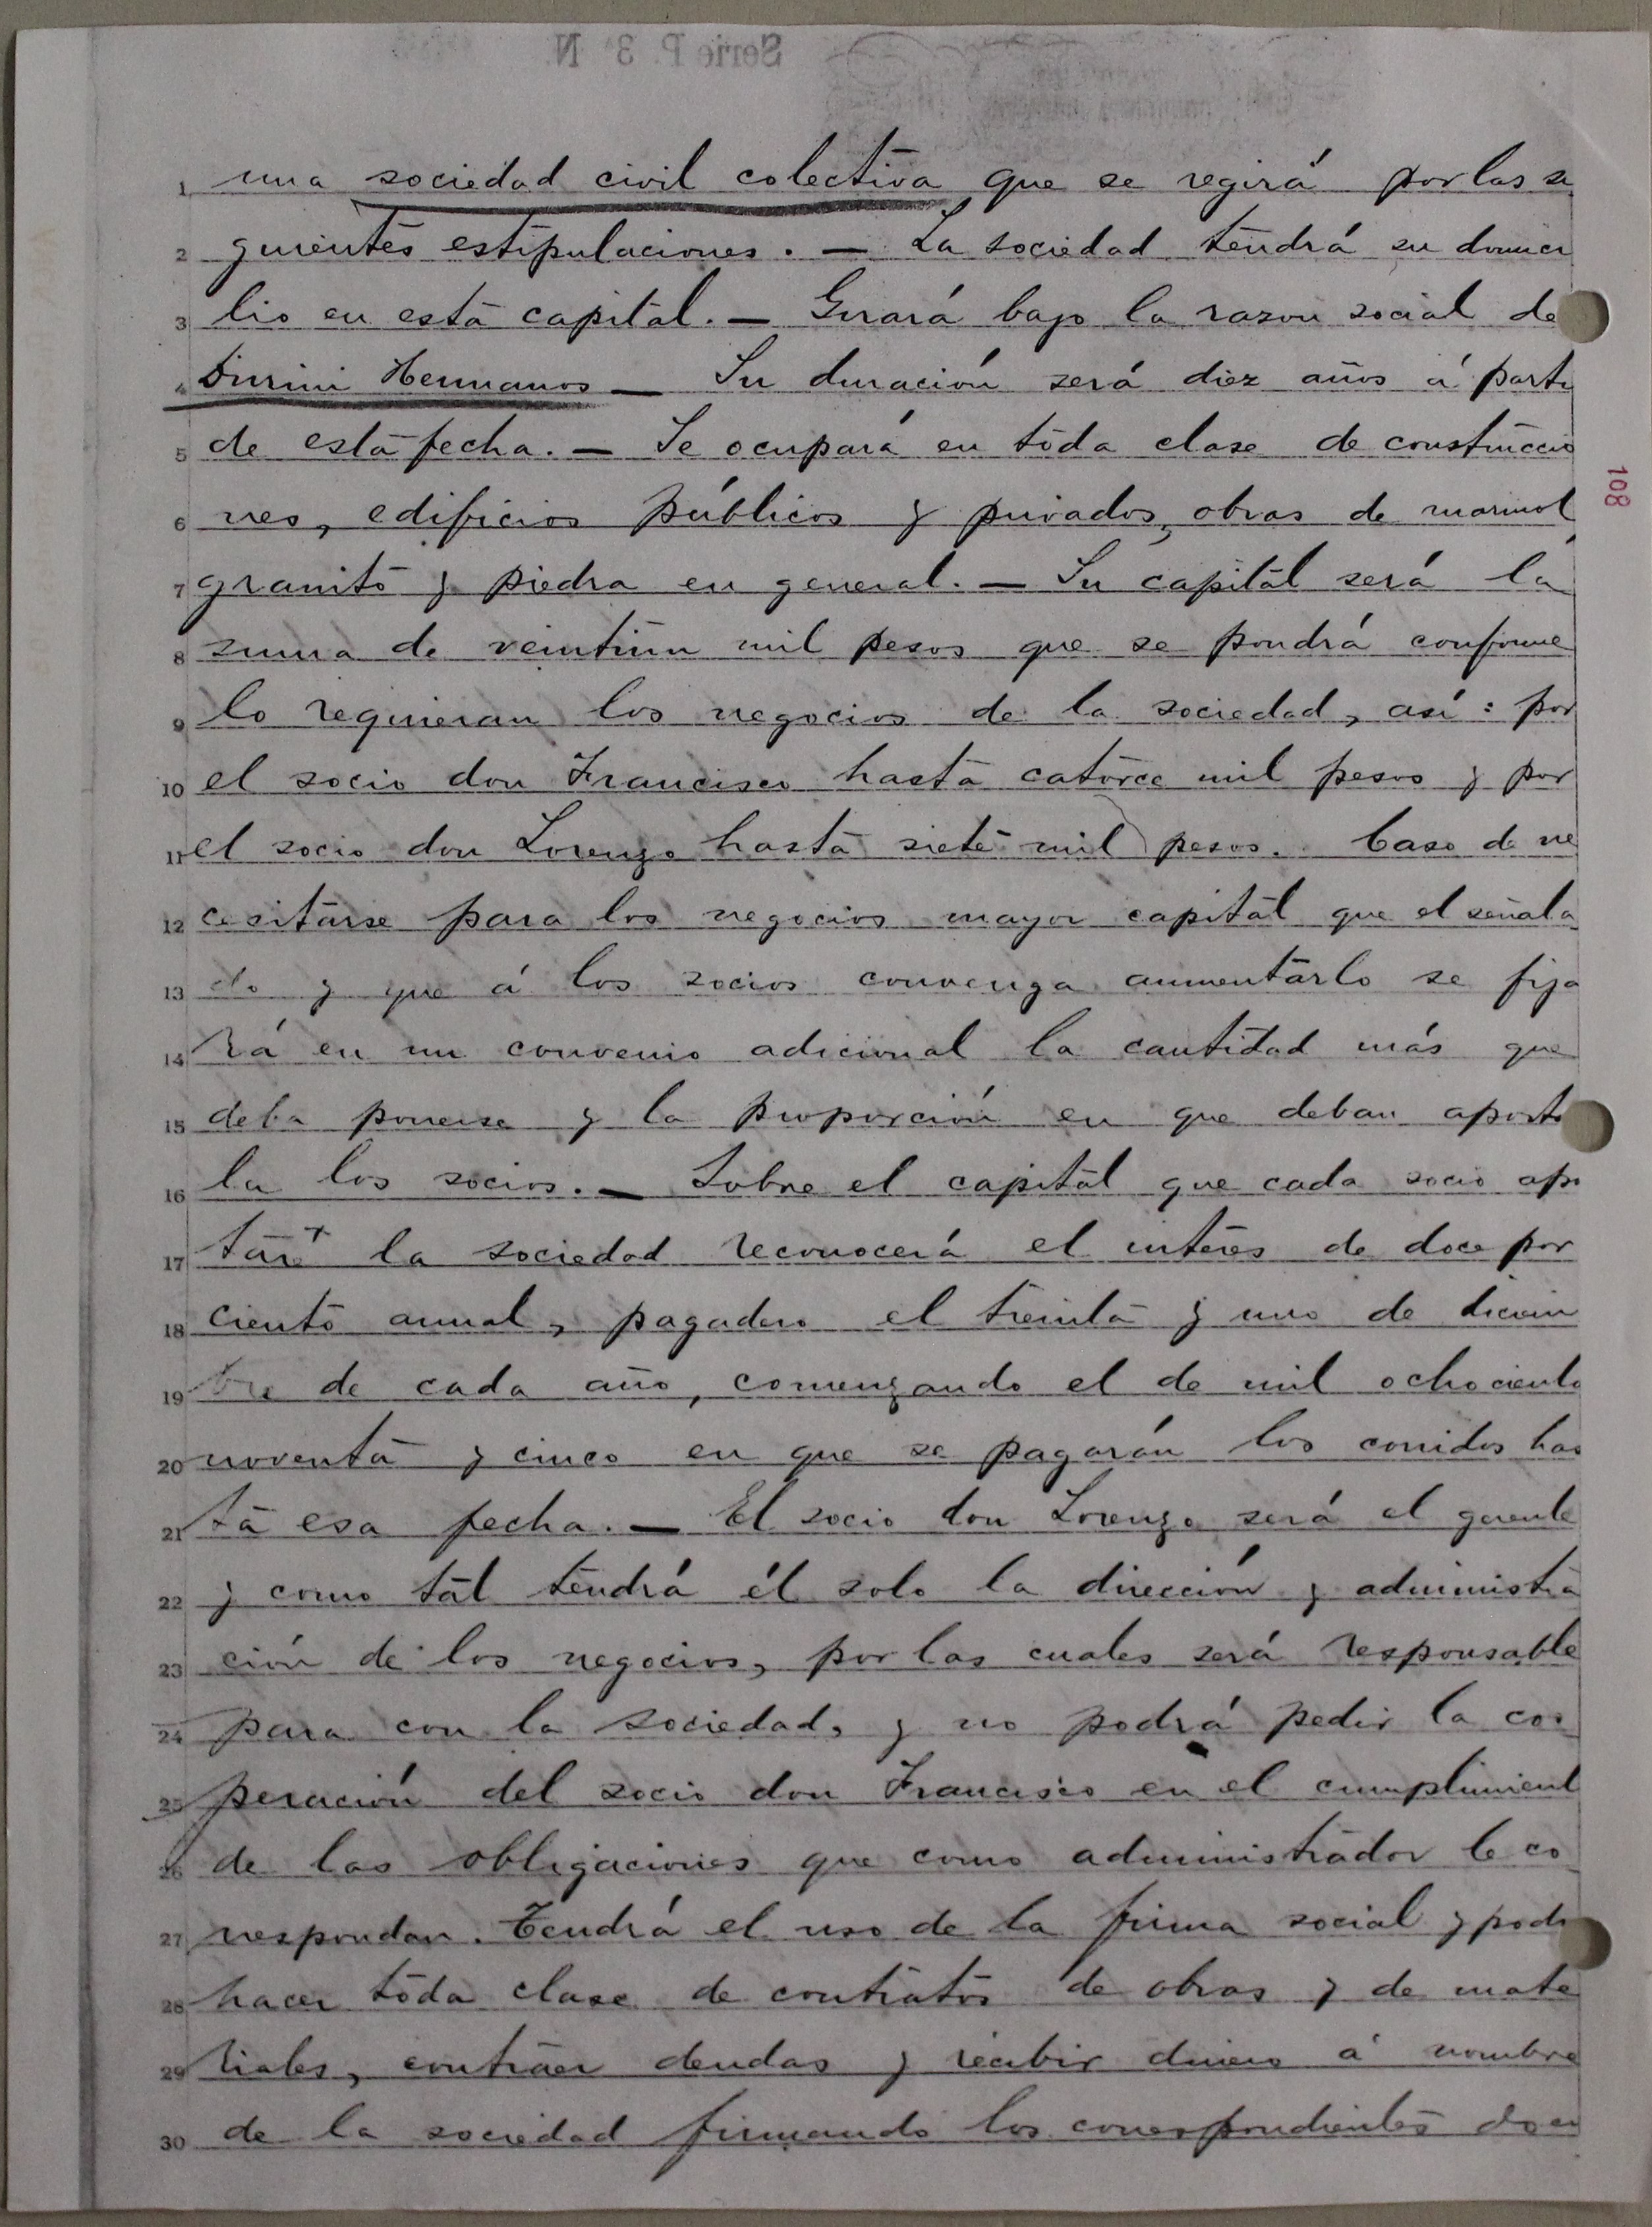 Serie P. 3 N
1 una sociedad civil colectiva que se regirá por las si
2 guientes estipulaciones. — La sociedad tendrá su domici
3 lio en esta capital. — Girará bajo la razon social de
4 Durini Hermanos — Su duración será diez años á parti
5 de esta fecha. — Se ocupará en toda clase de construccio
6 nes, edificios públicos y privados, obras de marmol,
7 granito y piedra en general. — Su capital será la
8 suma de veintiun mil pesos que se pondrá conforme
9 lo requieran los negocios de la sociedad, así: por
10 el socio don Francisco hasta catorce mil pesos y por
11 el socio don Lorenzo hasta siete mil pesos. Caso de ne
12 cesitarse para los negocios mayor capital que el señala
13 do y que á los socios convenga aumentarlo se fija
14 rá en un convenio adicional la cantidad más que
15 deba ponerse y la proporción en que deban aporta
16 la los socios. — Sobre el capital que cada socio apo
17 tare la sociedad reconocerá el interes de doce por
18 ciento anual, pagadero el treinta y uno de diciem
19 bre de cada año, comenzando el de mil ochociento
20 noventa y cinco en que se pagarán los corridos has
21 ta esa fecha. — El socio don Lorenzo será el gerente
22 y como tal tendrá él solo la dirección y administra
23 ción de los negocios, por las cuales será responsable
24 para con la sociedad, y no podrá pedir la coo
25 peración del socio don Francisco en el cumplimient
26 de las obligaciones que como administrador le co
27 rrespondan. Tendrá el uso de la firma social y podr
28 hacer toda clase de contratos de obras y de mate
29 riales, contraer deudas y recibir dinero á nombre
30 de la sociedad firmando los correspondientes docu
108